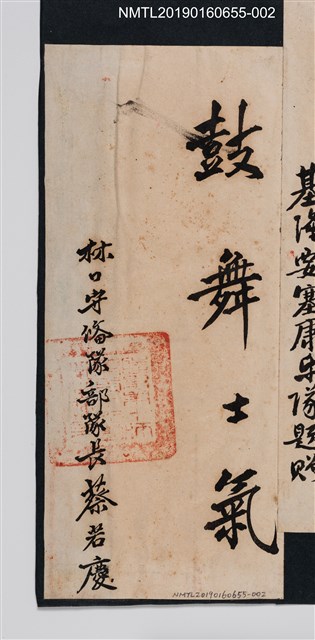 NMTL20190160655-002
基隆要塞康樂隊題贈
鼓舞士氣
林口守備隊部隊長蔡若慶
NMTL20190160655-002